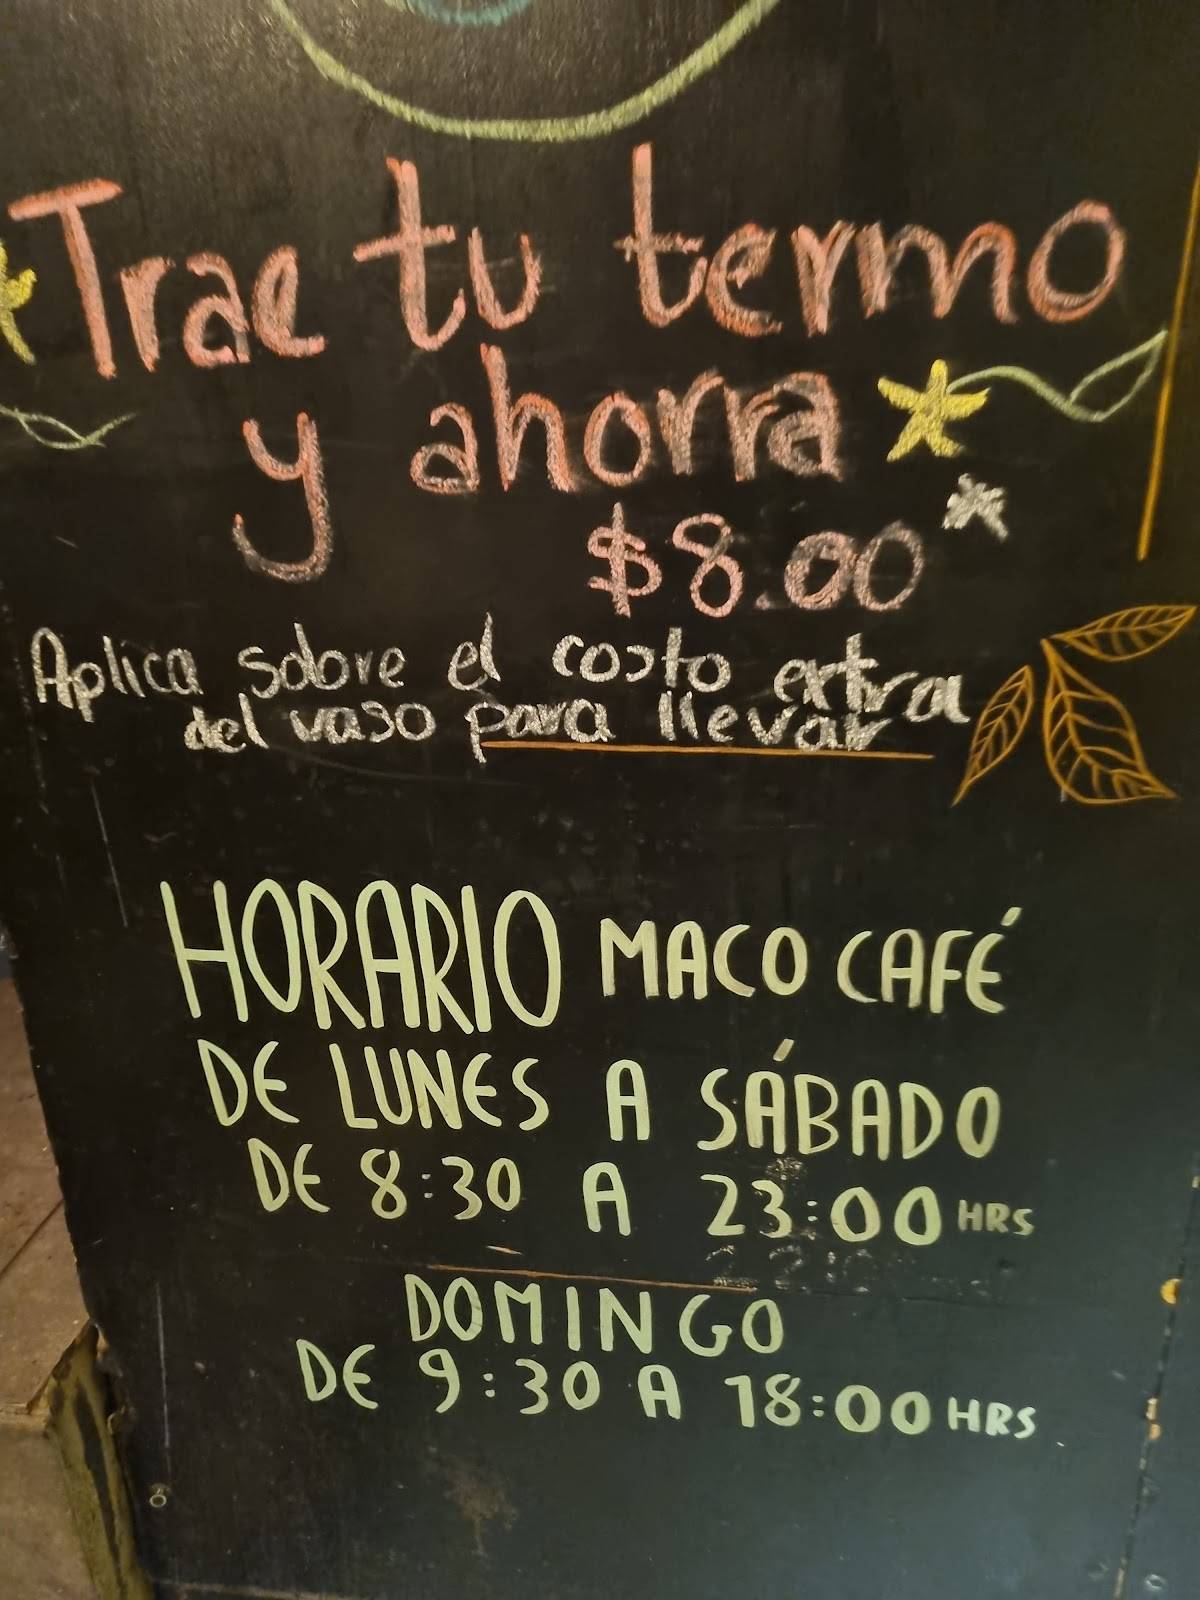 Trae tu termo
y ahorra
$8.00*
Aplica sobre el costo extra
del vaso para llevar
HORARIO MACO CAFÉ
DE LUNES A SÁBADO
DE 8:30 A 23:00 HRS
DOMINGO
DE 9:30 A 18:00 HRS